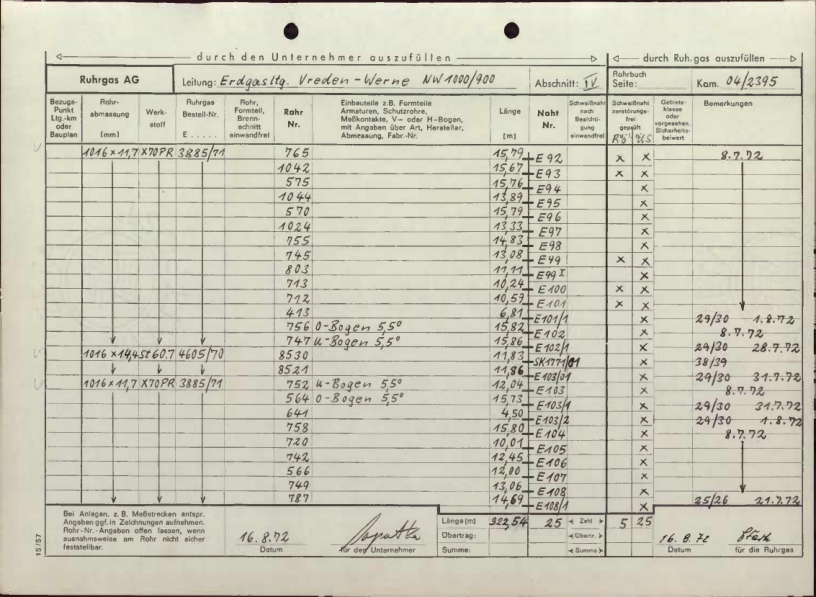 durch den Unternehmer auszufüllen durch Ruhrgas auszufüllen
Ruhrgas AG Leitung: Erdgasltg. Vreden - Werne NW 1000/900 Abschnitt: IV Rohrbuch Seite: Kom. 04/2395
Bezugs-Punkt Ltg.-km oder Bauplan Rohr-abmessung [mm] Werk-stoff Ruhrgas Bestell-Nr. E..... Rohr, Formteil, Brenn-schnitt einwandfrei Rohr Nr. Einbauteile z.B. Formteile Armaturen, Schutzrohre, Meßkontakte, V- oder H-Bogen, mit Angaben über Art, Hersteller, Abmessung, Fabr.-Nr. Länge [m] Naht Nr. Schweißnaht nach Besichti-gung einwandfrei Schweißnaht zerstörungs-frei geprüft Rö US Gebiets-klasse oder vorgesehen. Sicherheits-beiwert Bemerkungen
1016 x 11,7 X70PR 3885/71 765 15,79 E 92 x x 8.7.72
1042 15,67 E93 x x
575 15,76 E94 x
1044 13,89 E95 x
570 15,79 E96 x
1024 13,33 E97 x
755 14,83 E98 x
745 13,08 E99 x x
803 11,11 E99 I x
713 10,24 E100 x x
712 10,59 E101 x x
413 6,81 E101/1 x 29/30 1.8.72
756 O-Bogen 5,5° 15,82 E102 x 8.7.72
747 U-Bogen 5,5° 15,86 E102/1 x 29/30 28.7.72
1016 x 14,4 St 60.7 4605/70 8530 11,83 SK1771/01 x 38/39
8521 11,86 E103/01 x 29/30 31.7.72
1016 x 11,7 X70PR 3885/71 752 U-Bogen 5,5° 12,04 E103 x 8.7.72
564 O-Bogen 5,5° 15,73 E103/1 x 29/30 31.7.72
641 4,50 E103/2 x 29/30 1.8.72
758 15,80 E104 x 8.7.72
720 10,01 E105 x
742 12,45 E106 x
566 12,00 E107 x
749 13,06 E108 x
787 14,69 E108/1 x 25/26 21.7.72
Bei Anlagen, z.B. Meßstrecken entspr. Angaben ggf. in Zeichnungen aufnehmen. Rohr-Nr.-Angaben offen lassen, wenn ausnahmsweise am Rohr nicht sicher feststellbar.
Länge [m] 322,54 25 Zahl 5 25
Übertrag: Übertr.
Summe: Summe
16.8.72 16.8.72
Datum für den Unternehmer Datum für die Ruhrgas
15/57